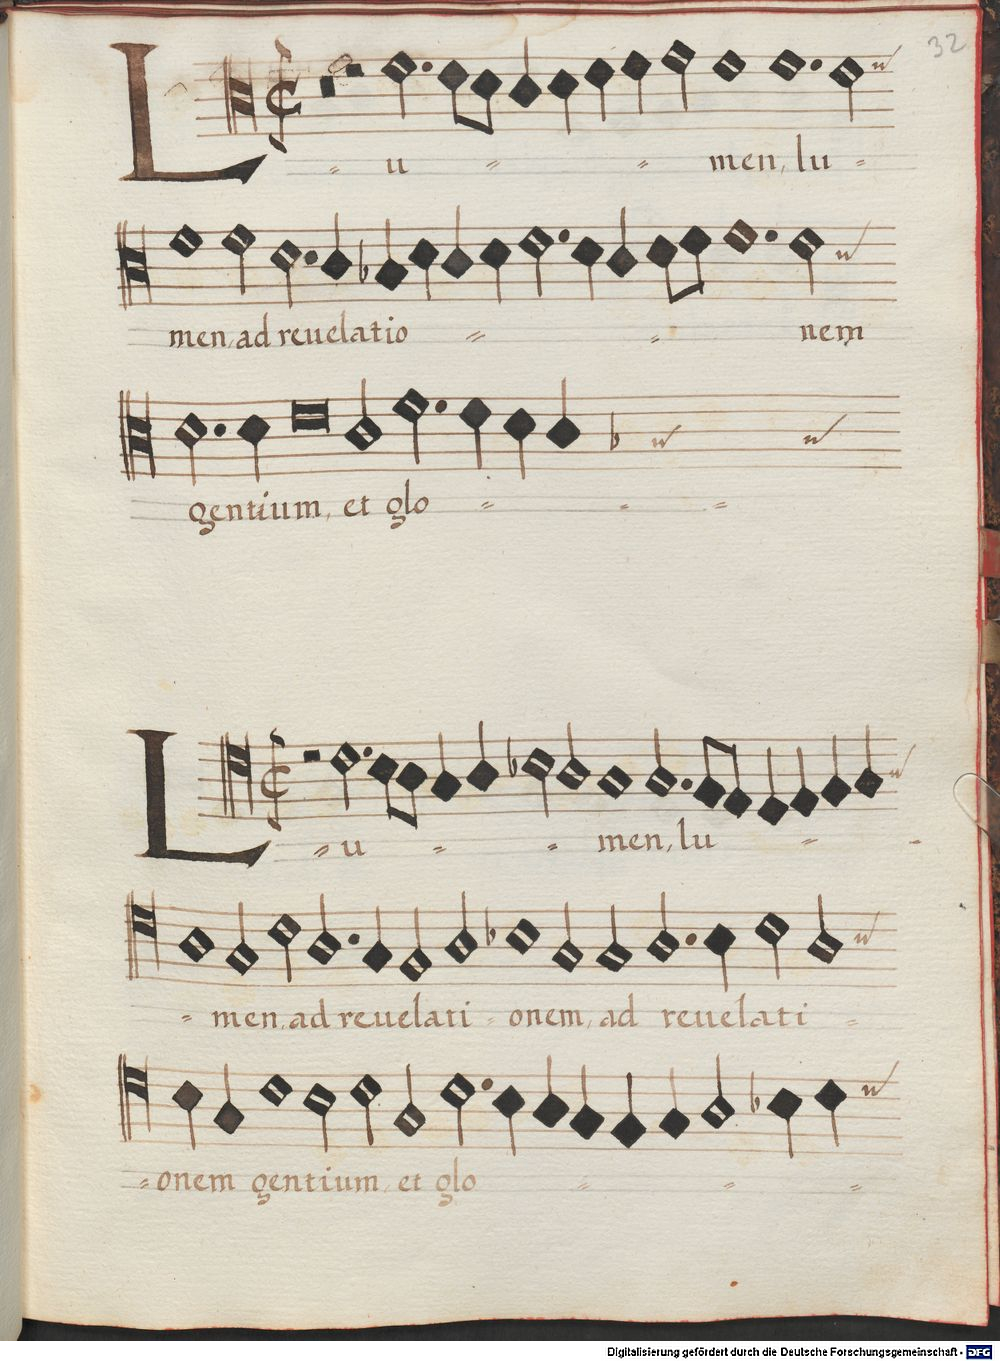 32
L
u men, lu
men, ad reuelatio nem
gentium, et glo
L
u men, lu
men, ad reuelati onem, ad reuelati
onem gentium, et glo
Digitalisierung gefördert durch die Deutsche Forschungsgemeinschaft - DFG